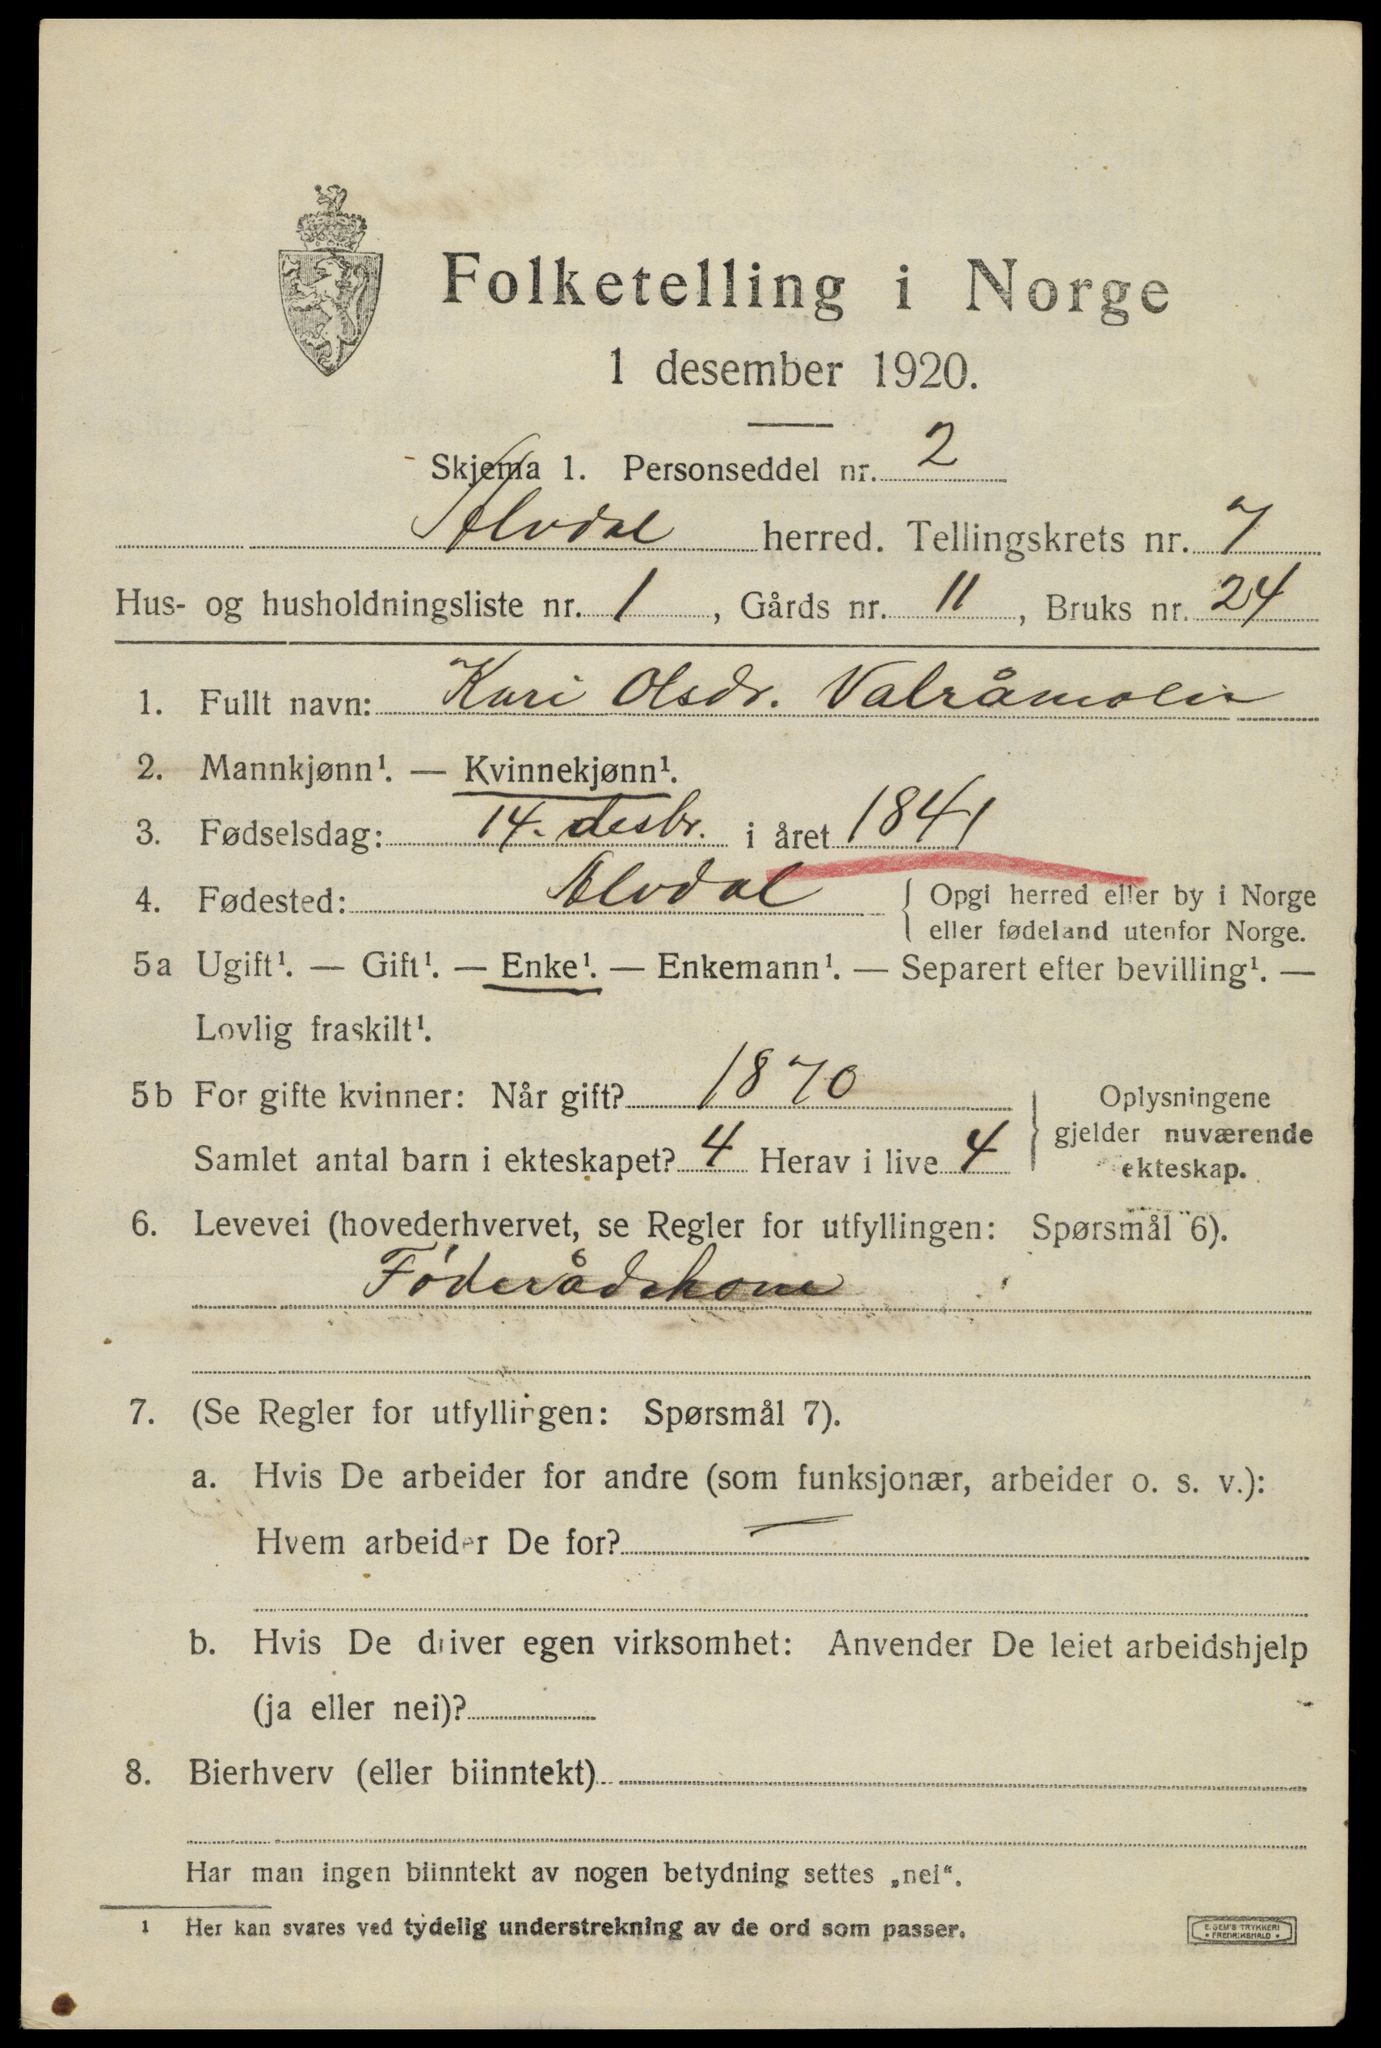 Folketelling i Norge
1 desember 1920.
Skjema 1. Personseddel nr. 2
Alvdal herred. Tellingskrets nr. 7
Hus- og husholdningsliste nr. 1, Gårds nr. 11, Bruks nr. 24
1. Fullt navn: Kari Olsdr. Valråmoen
2. Mannkjønn¹. — Kvinnekjønn¹.
3. Fødselsdag: 14. desbr. i året 1841
4. Fødested: Alvdal { Opgi herred eller by i Norge
eller fødeland utenfor Norge.
5a Ugift¹. — Gift¹. — Enke¹. — Enkemann¹. — Separert efter bevilling¹. —
Lovlig fraskilt¹.
5b For gifte kvinner: Når gift? 1870
Samlet antal barn i ekteskapet? 4 Herav i live 4
} Oplysningene
gjelder nuværende
ekteskap.
6. Levevei (hovederhvervet, se Regler for utfyllingen: Spørsmål 6).
Føderådskone
7. (Se Regler for utfyllingen: Spørsmål 7).
a. Hvis De arbeider for andre (som funksjonær, arbeider o. s. v.):
Hvem arbeider De for? —
b. Hvis De driver egen virksomhet: Anvender De leiet arbeidshjelp
(ja eller nei)?
8. Bierhverv (eller biinntekt)
Har man ingen biinntekt av nogen betydning settes „nei“.
1 Her kan svares ved tydelig understrekning av de ord som passer.
E. SEM'S TRYKKERI
• FREDRIKSHALD •